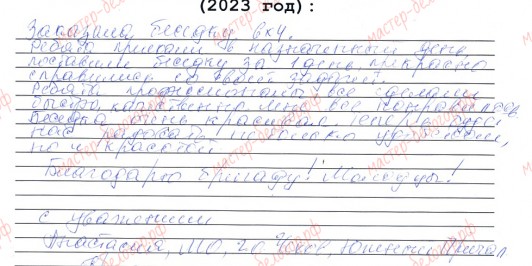 (2023 год):
Заказала беседку в ку.
Ребята приехали в назначенный день,
поставили беседку за 1 день, прекрасно
справились со своей задачей.
Ребята профессионалы, все сделали
быстро, качественно, мне все понравилось
Беседка очень красивая. Теперь будет
нас радовать не только удобством,
но и красотой
Благодарю бригаду! Молодцы!
с уважением
Анастасия, МО, го Чехов,
мастер-белдвор.рф